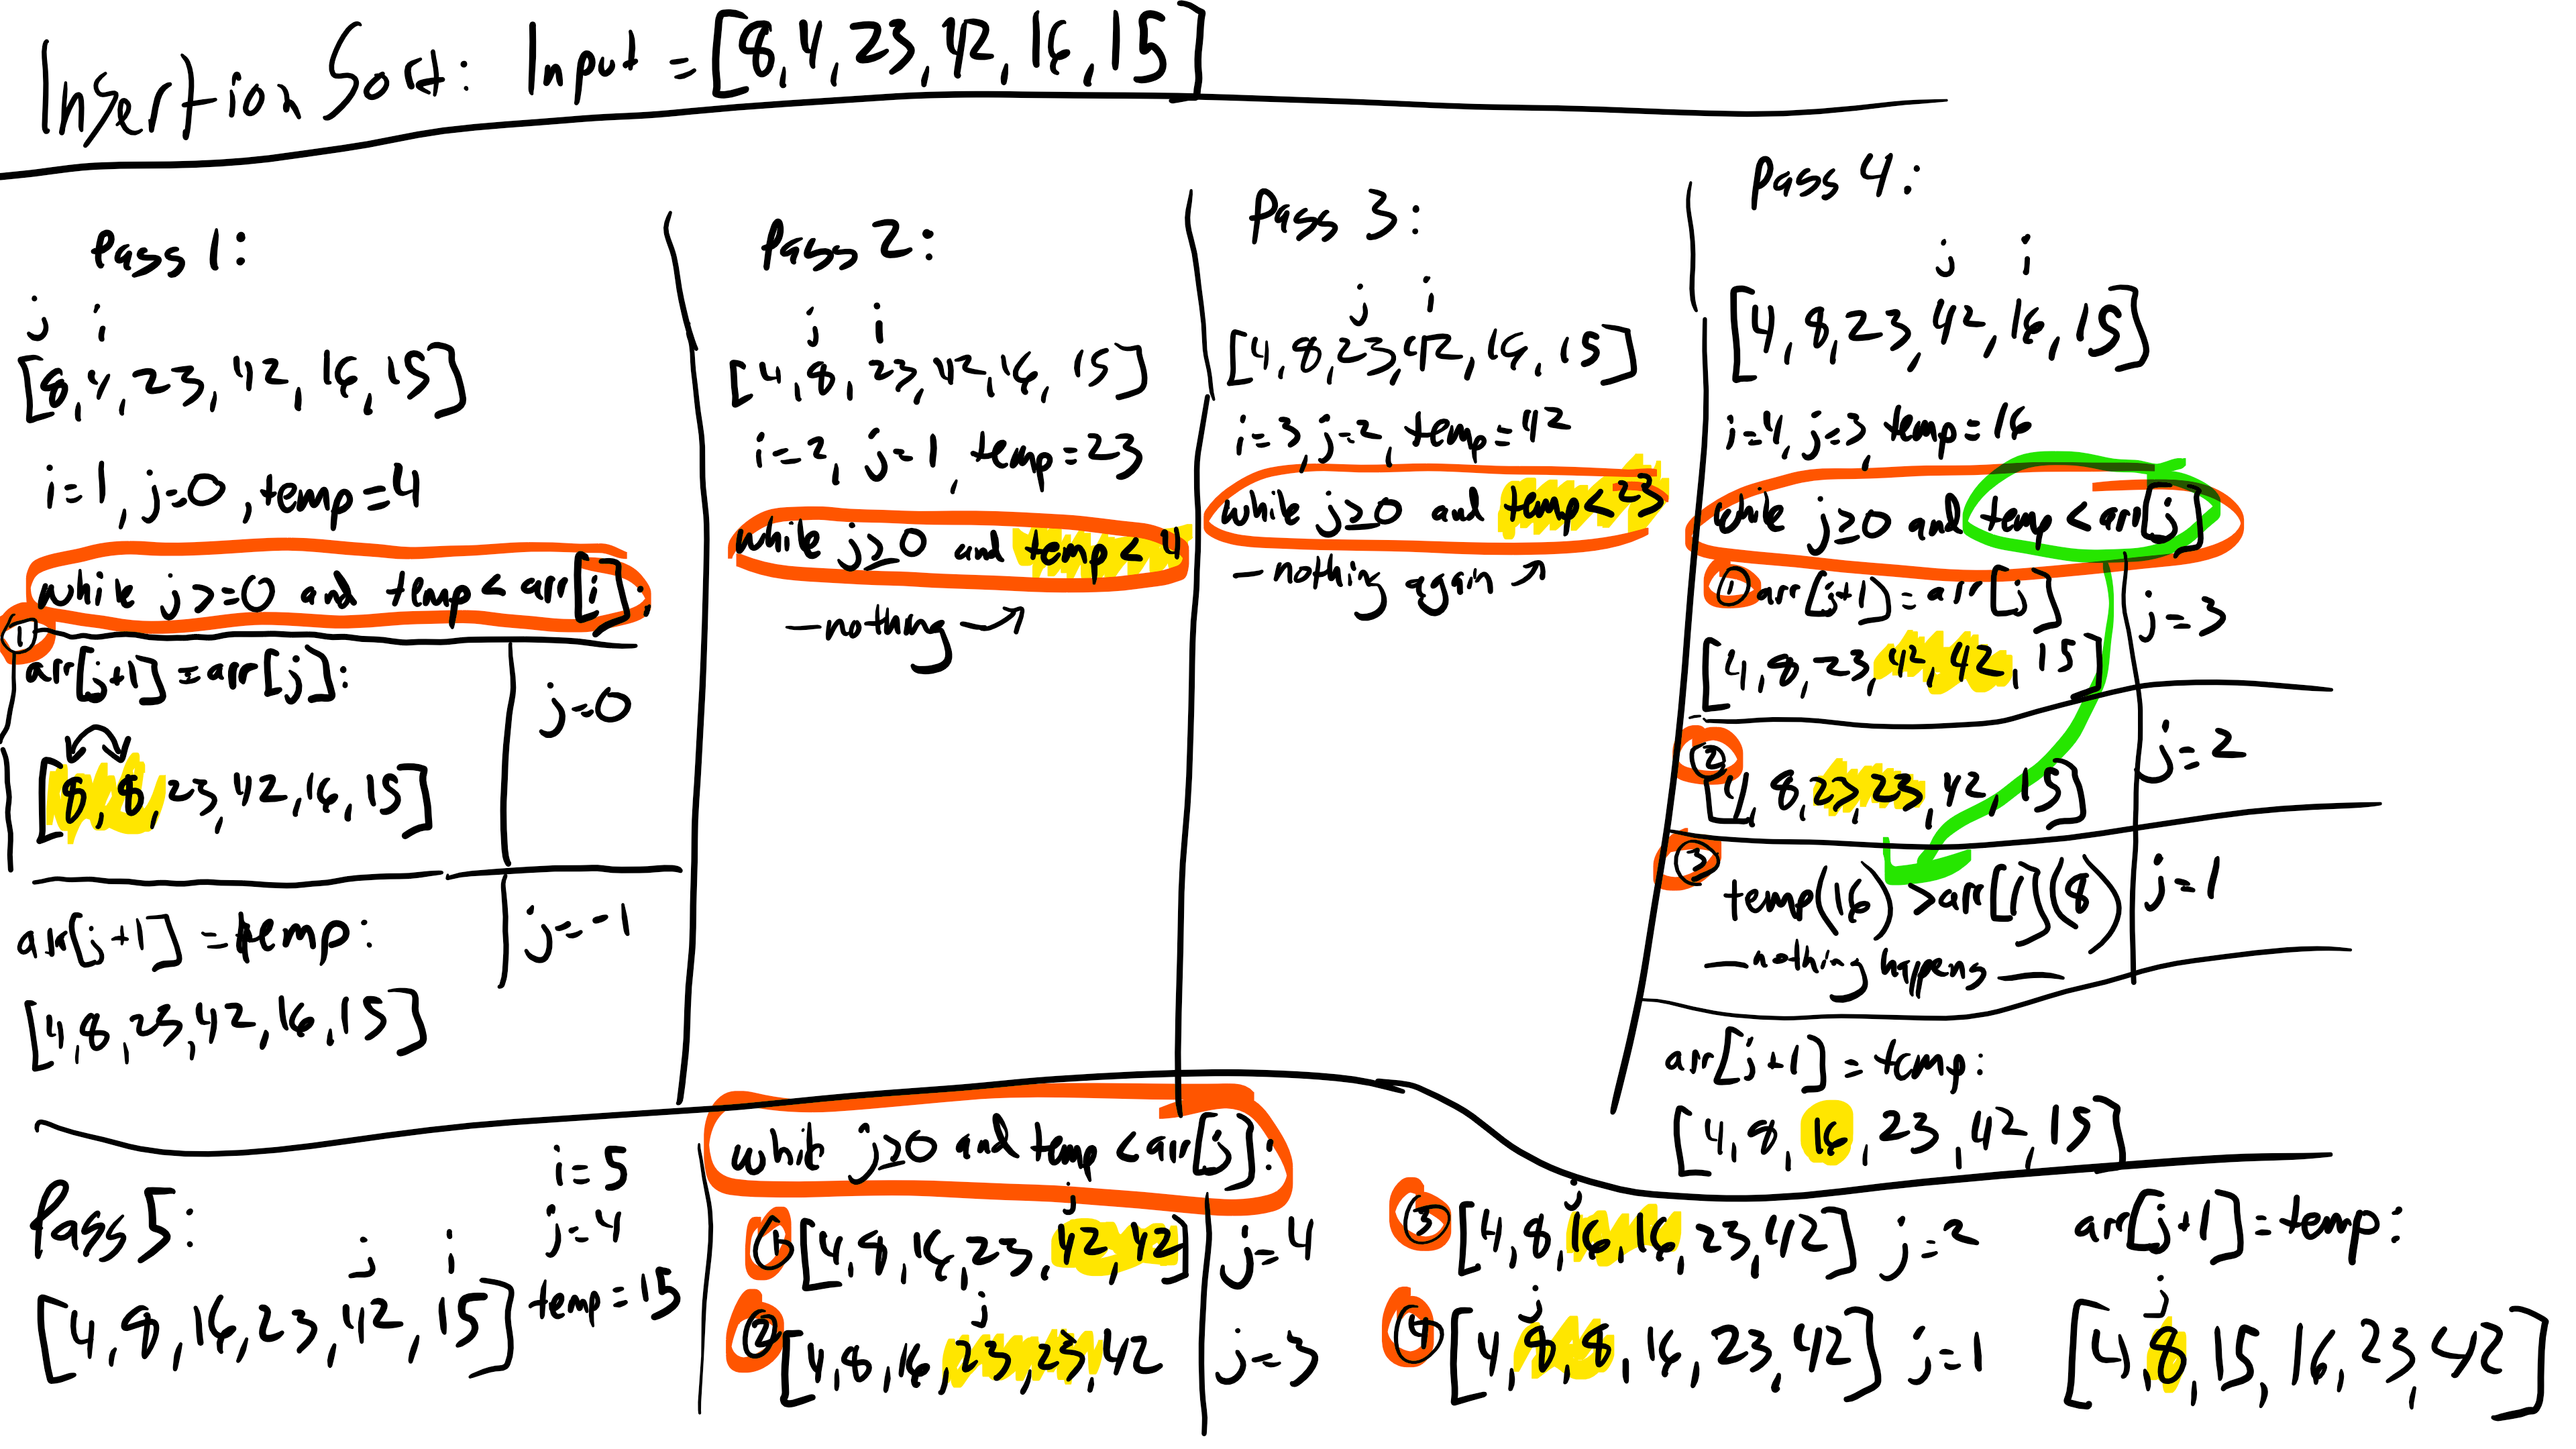 Insertion Sort: Input = [8,4,23,42,16,15]
Pass 1:
j i
[8,4,23,42,16,15]
i=1, j=0, temp=4
while j>=0 and temp < arr[i]:
① arr[j+1] = arr[j]:
j=0
[8,8,23,42,16,15]
arr[j+1] = temp:
j=-1
[4,8,23,42,16,15]
Pass 2:
j i
[4,8,23,42,16,15]
i=2, j=1, temp=23
while j≥0 and temp < 4
—nothing→
Pass 3:
j i
[4,8,23,42,16,15]
i=3, j=2, temp=42
while j≥0 and temp < 23
—nothing again ↗
Pass 4:
j i
[4,8,23,42,16,15]
i=4, j=3, temp=16
while j≥0 and temp < arr[j]
① arr[j+1] = arr[j]
j=3
[4,8,23,42,42,15]
②
[4,8,23,23,42,15]
j=2
③
temp(16) > arr[1](8)
j=1
—nothing happens—
arr[j+1] = temp:
[4,8,16,23,42,15]
Pass 5:
i=5
j=4
temp=15
j i
[4,8,16,23,42,15]
while j≥0 and temp < arr[j]:
j
① [4,8,16,23,42,42] j=4
j
② [4,8,16,23,23,42 j=3
j
③ [4,8,16,16,23,42] j=2
j
④ [4,8,8,16,23,42] j=1
arr[j+1] = temp:
j
[4,8,15,16,23,42]